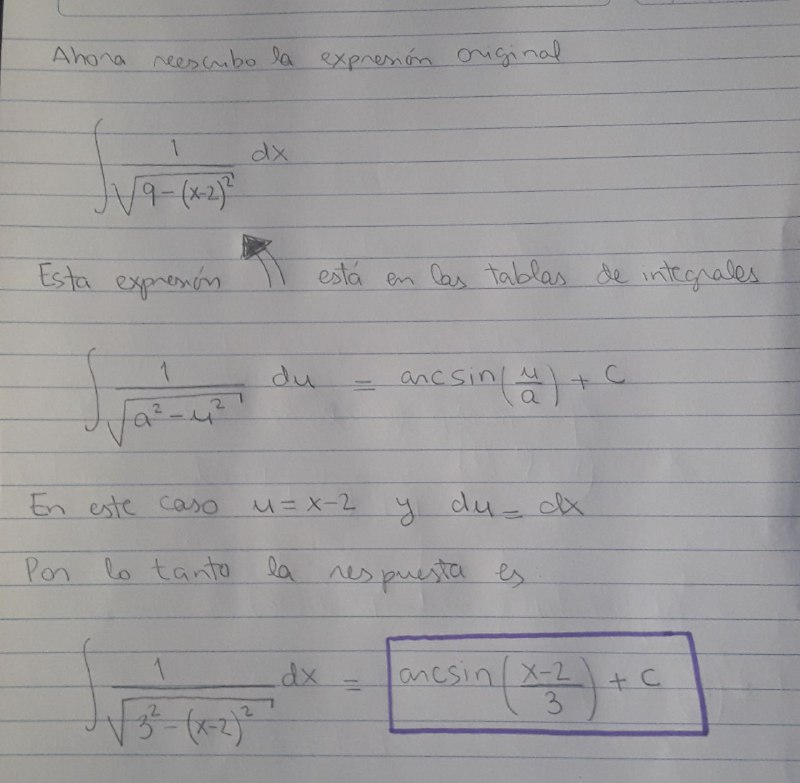 Ahora reescribo la expresión original
∫ 1/√(9-(x-2)²) dx
Esta expresión está en las tablas de integrales
∫ 1/√(a²-u²) du = arcsin(u/a) + C
En este caso u = x-2 y du = dx
Por lo tanto la respuesta es
∫ 1/√(3²-(x-2)²) dx = arcsin((x-2)/3) + C